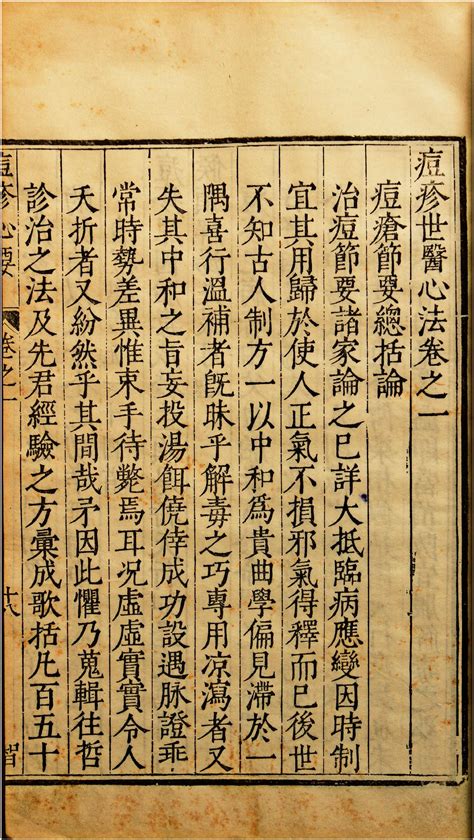 痘疹世醫心法卷之一
痘瘡節要總括論
治痘節要諸家論之已詳大抵臨病應變因時制
宜其用歸於使人正氣不損邪氣得釋而已後世
不知古人制方一以中和爲貴曲學偏見滯於一
隅喜行溫補者旣昧乎解毒之巧專用凉瀉者又
失其中和之旨妄投湯餌僥倖成功設遇脉證乖
常時勢差異惟束手待斃焉耳况虛虛實實令人
夭折者又紛然乎其間哉矛因此懼乃蒐輯往哲
診治之法及先君經驗之方彙成歌括凢百五十
痘疹心要 卷之一